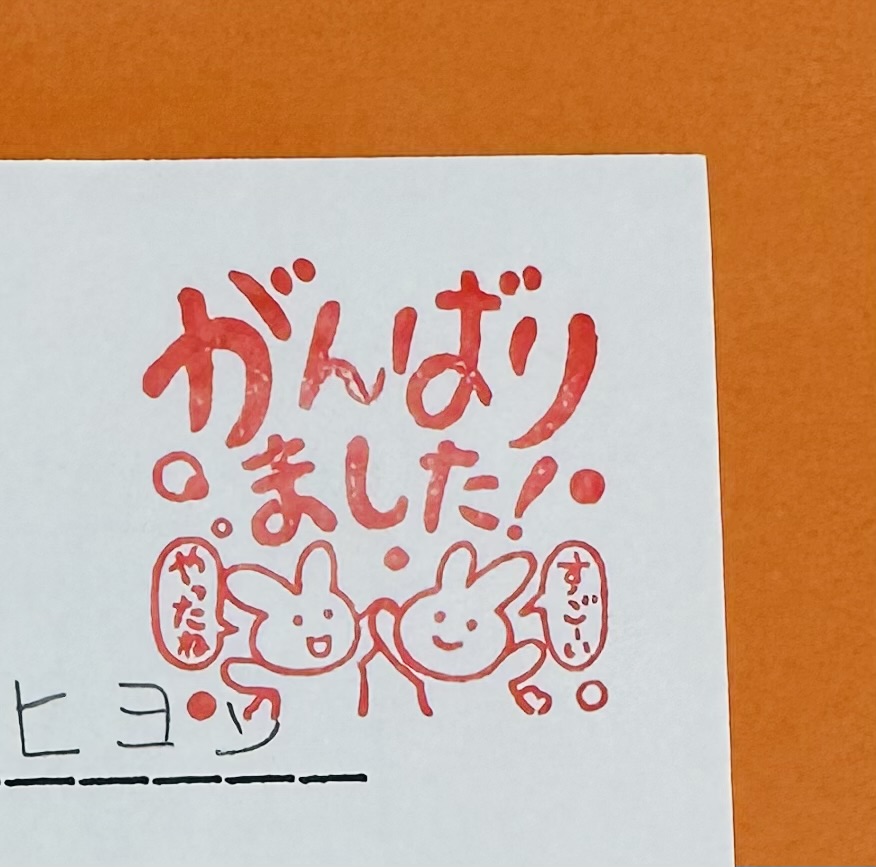 がんばり
ました!
やったね
すごーい
ヒヨリ